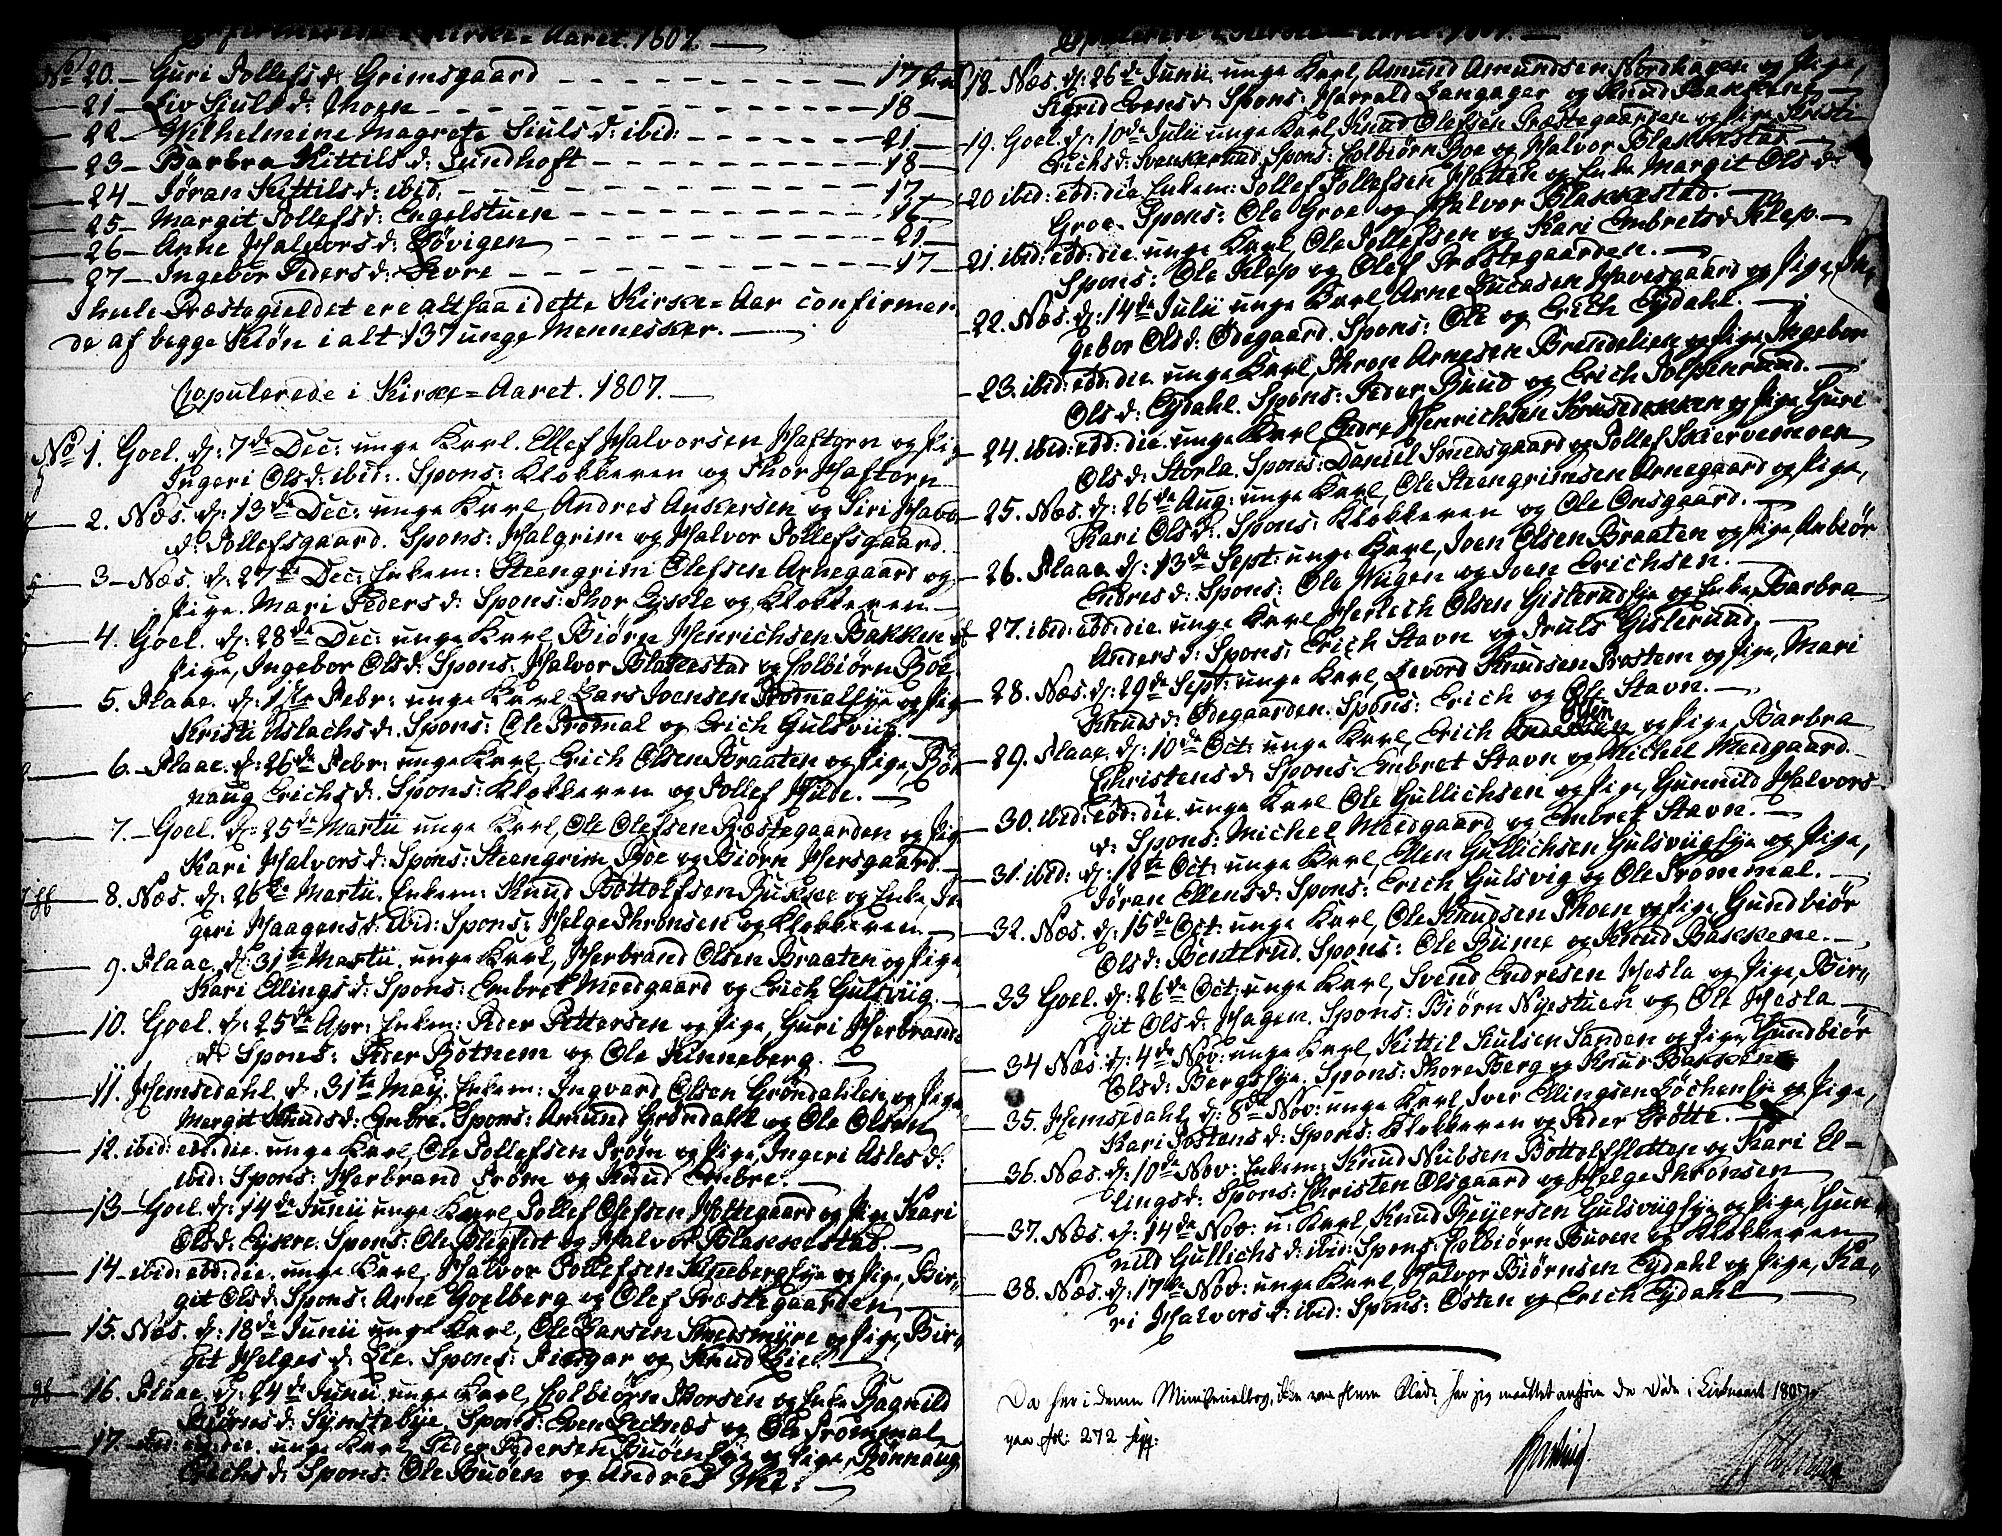 Confirmerede i Kirke=Aaret. 1807.
No 20. Guri Tollefsd: Grimsgaard 17
21 Liv Siulsd: Thoen 18
22 Wilhelmine Magrete Siulsd: ibid: 21
23 Barbra Kittilsd: Sundhoft 18
24 Jøran Kittilsd: ibid. 17
25 Margit Tollefsd: Engelstuen 16
26 Anne Halvorsd: Løvigen 21
27 Ingebor Pedersd: Sevre 17
I hele Præstegieldet ere altsaa i dette Kirke=Aar confirmer
de af begge Kiøn i alt 137 unge Mennesker.
Copulerede i Kirke=Aaret. 1807.
No 1. Goel. d: 7de Dec: unge Karl. Ellef Halvorsen Haftorn og Pi
Ingeri Olsd: ibid:. Spons: Klokkeren og Thor Haftorn
2. Næs. d: 13de Dec: unge Karl, Andres Ankersen og Siri Halvo
d: Tollefsgaard. Spons: Halgrim og Halvor Tollefsgaard.
3 Næs. d: 27de Dec: Enkem: Steengrim Olefsen Arnegaard og
Pige. Mari Pedersd: Spons: Thor Eyskle og Klokkeren
4. Goel. d: 28de Dec: unge Karl, Biørn Henrichsen Bakken og
Pige, Ingebor Olsd: Spons: Halvor Blakkestad og Colbiørn Boe
5. Flaae. d: 1ste Febr: unge Karl Lars Ivensen Trommalseye og Pig
Kristi Aslachsd: Spons: Ole Tromal og Erich Gulsviig.
6. Flaae. d: 26de Febr: unge Karl, Erich Olsen Braaten og Pige, Røn
naug Erichsd. Spons: Klokkeren og Tollef Hilde.
7. Goel. d: 25de Martii unge Karl, Ole Olefsen Præstegaarden og Pig
Kari Halvorsd: Spons: Steengrim Boe og Biørn Hersgaard.
8. Næs. d: 26de Martii. Enkem: Knud Bottolfsen Rukke og Enke, In
geri Haagensd: ibid: Spons: Helge Thronsen og Klokkeren
9. Flaae. d: 31te Martii. unge Karl, Herbrand Olsen Braaten og Pige
Kari Ellingsd: Spons: Embret Meedgaard og Erich Gulsviig.
10. Goel. d: 25de Apr: Enkem: Peder Pettersen og Pige, Guri Herbrands
d: Spons: Peder Botnem og Ole Kinneberg.
11. Hemsedahl. d: 31te Maij. Enkem: Ingvard Olsen Grøndahlen og Pige
Margit Knudsd: Embre. Spons: Amund Grøndahl og Ole Olsen
12. ibid: eod: die. unge Karl, Ole Tollefsen Trøim og Pige, Ingeri Aslesd:
ibid: Spons: Herbrand Trøm og Knud Embre.
13 Goel. d: 14de Junii unge Karl, Tollef Olefsen Hottegaard og Pige Kari
Olsd: Eyskre. Spons: Ole Bligfidt og Halvor Blakkestad.
14 ibid: eod: die. unge Karl, Halvor Tollefsen Kinneberg eye og Pige, Bir=
git Olsd: Spons: Arne Goelberg og Olef Præstegaarden
15. Næs. d: 18de Junii unge Karl, Ole Larsen Smedsmyre og Pige, Bir=
git Helgesd. Lie. Spons: og Knud Liel.
16. Flaae. d: 24de Junii unge Karl, Colbiørn Thorsen og Enke Ragnild
Biørnsd: Spons: Even og Ole Trommal
17. ibid: eod: die. unge Karl, Peder Pedersen Buøen eye og Pige, Rønnaug
Erichsd: Spons: Ole Buøen og Andres Moe.
Copulerede i Kirke=Aaret. 1807.
18. Næs. d: 26de Junii unge Karl, Amund Amundsen Nordhagen og Pige,
Sigrid Evensd: Spons: Harrald Langager og Knud Bakkene
19. Goel. d: 10de Julii unge Karl, Knud Olefsen Præstegaarden og Pige Kristi
Erichsd: Svenkerud, Spons: Colbiørn Boe og Halvor Blakkestad
20 ibid: eod: die. Enkem: Tollef Tollefsen Hatten og Enke Margit Olsd:
Groe. Spons: Ole Groe og Halvor Blakkestad.
21. ibid: eod: die. unge Karl, Ole Tollefsen og Kari Embretsd Klep.
Spons: Ole Klep og Olef Præstegaarden.
22. Næs. d: 14de Julii unge Karl, Arne Lucasen Havesgaard og Pige, In
gebor Olsd: Ødegaard. Spons: Ole og Erich Eydahl.
23. ibid: eod: die. unge Karl, Thron Arnesen Brendelien og Pige Ingebor
Olsd: Eydahl. Spons: Peder Ruud og Erich Tolfsenruud.
24. ibid: eod: die. unge Karl, Endre Henrichsen Knusedokken og Pige, Guri
Olsd: Storla. Spons: Daniel Smedsgaard og Tollef Skiervemoen
25. Næs. d: 26de Aug: unge Karl, Ole Steengrimsen Arnegaard og Pige,
Kari Olsd:. Spons: Klokkeren og Ole Onsgaard.
26. Flaae. d: 13de Sept: unge Karl, Joen Olsen Braaten og Pige, Anbiør
Endresd: Spons: Ole Wigen og Joen Erichsen.
27. ibid: eod: die. unge Karl Herlich Olsen Gislerud eye og Enke, Barbra
Andersd: Spons: Erich Stavn og Truls Gislerud.
28. Næs. d: 29de Sept: unge Karl, Levord Knudsen Trostem og Pige, Mari
Knudsd: Ødegaarden. Spons: Erich og Ole Stavn.
29. Flaae. d: 10de Oct: unge Karl, Erich Olsen og Pige, Barbra
Christensd: Spons: Embret Stavn og Michel Meedgaard.
30. ibid: eod: die. unge Karl Ole Gullichsen og Pige, Gunnild Halvors
d: Spons: Michel Meedgaard og Embret Stavn.
31. ibid: d: 11te Oct: unge Karl, Ellen Gullichsen Gulsviigeye og Pige,
Jøran Ellensd: Spons: Erich Gulsvig og Ole Trommal.
32. Næs. d: 15de Oct: unge Karl, Ole Knudsen Thoen og Pige Gundbiør
Olsd: Bentrud. Spons: Ole Rime og Knud Bakkene.
33 Goel. d: 26de Oct: unge Karl, Svend Endresen Hesla og Pige, Bir=
git Olsd: Hagen. Spons: Biørn Nyestuen og Ole Hesla
34 Næs. d: 4de Nov: unge Karl, Kittil Siulsen Sanden og Pige, Gundbiør
Olsd: Bergseye. Spons: Thore Berg og Knud Bakkene
35. Hemsedahl. d: 8de Nov: unge Karl, Iver Ellingsen Løchenseye og Pige,
Kari Tostensd: Spons: Klokkeren og Peder Trøtte.
36. Næs. d: 10de Nov: Enkem: Knud Nubsen Bottolfsletten og Kari El=
lingsd: Spons: Christen Olsgaard og Helge Thronsen
37. Næs. d: 14de Nov: u: Karl, Knud Reyersen Gulsviigeye og Pige, Gun=
nild Gullichsd: ibid: Spons: Colbiørn Buøen og Klokkeren
38. Næs. d: 17de Nov: unge Karl, Halvor Biørnsen Eydahl og Pige, Ka=
ri Halvorsd: ibid: Spons: Østen og Erich Eydahl
Da her i denne Ministerialbog, ikke var flere Blade, har jeg maattet anføre de Døde i Kirkeaaret 1807
paa fol: 272 seqq: